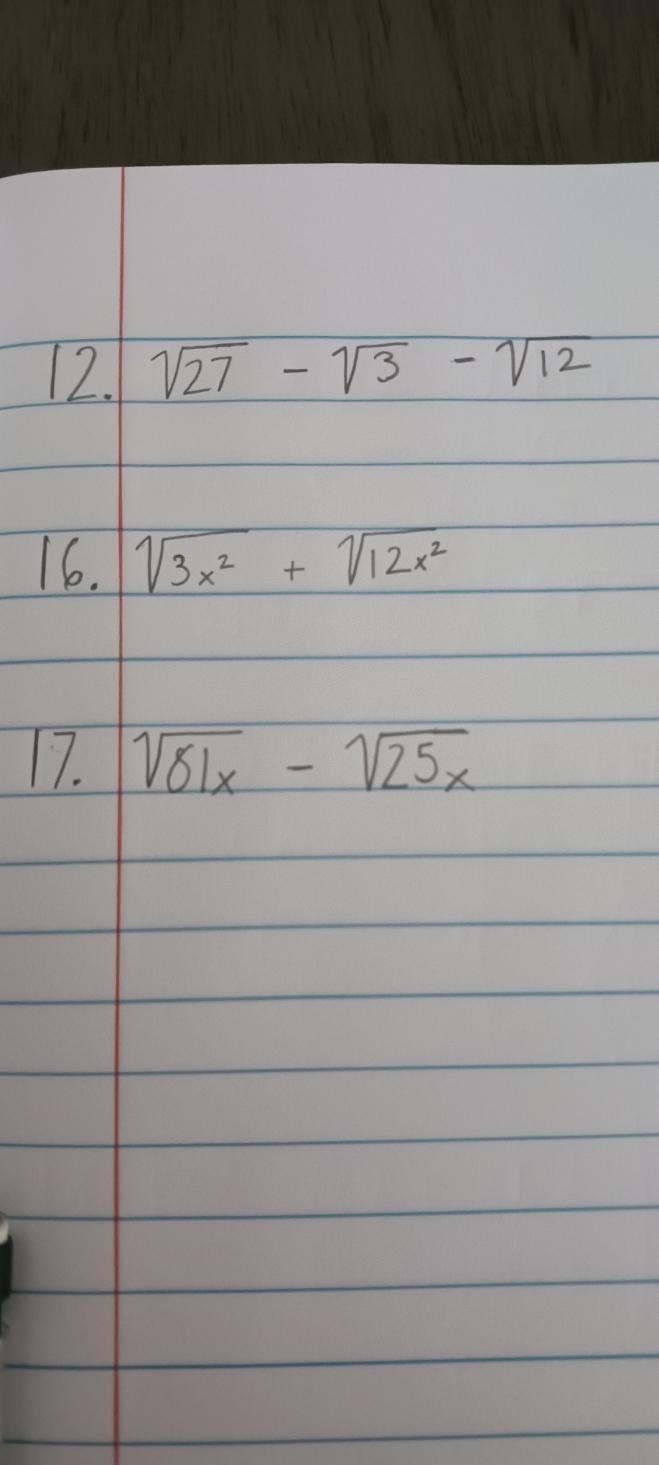 12. √27 - √3 - √12
16. √3x² + √12x²
17. √81x - √25x